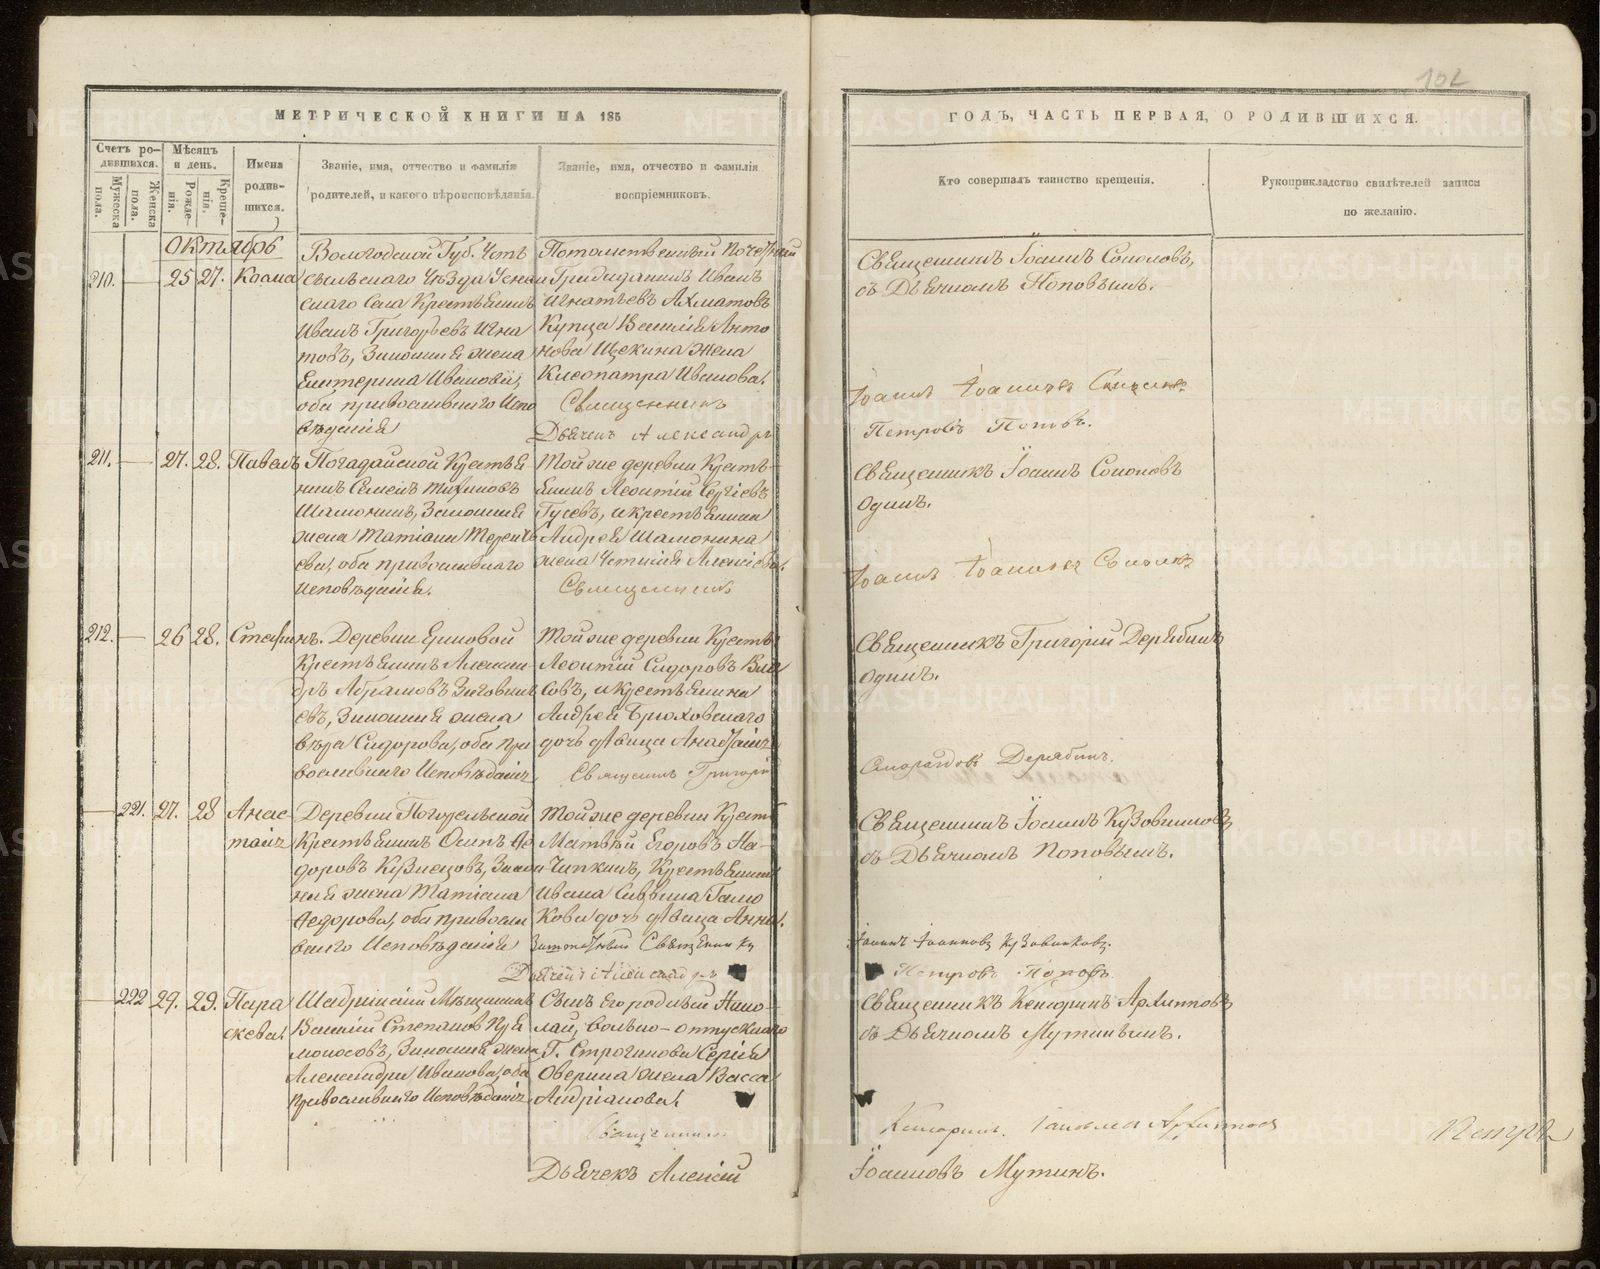 102
МЕТРИЧЕСКОЙ КНИГИ НА 185
ГОДЪ, ЧАСТЬ ПЕРВАЯ, О РОДИВШИХСЯ.
Счетъ родившихся.
Мужеска пола.
Женска пола.
Мѣсяцъ и день.
Рожденія.
Крещенія.
Имена родившихся.
Званіе, имя, отчество и фамилія
родителей, и какого вѣроисповѣданія.
Званіе, имя, отчество и фамилія
воспріемниковъ.
Кто совершалъ таинство крещенія.
Рукоприкладство свидѣтелей записи
по желанію.
Октябрь
210. 25 27. Козма
Вологодской Губ. Усть
сысольскаго Уѣзда
скаго Села Крестьянинъ
Иванъ Григорьевъ Игна
товъ, Законная жена
Екатерина Иванова,
оба православнаго Испо
вѣданія
Потомственный Почетный
Гражданинъ Иванъ
Игнатьевъ Ахматовъ
Купца Василія Анто
нова Щекина жена
Клеопатра Иванова.
Священникъ
Дьячекъ Александръ
Священникъ Іоаннъ Соколовъ,
съ Дьячкомъ Поповымъ.
Іоаннъ Іоанновъ Соколовъ
Петровъ Поповъ.
211. 27. 28. Павелъ
Погадайской Крестья
нинъ Семенъ Тихоновъ
Шамонинъ, Законная
жена Татіана Терентье
ва, оба православнаго
Исповѣданія.
Той же деревни Кресть
янинъ Леонтій Сергіевъ
Гусевъ, и крестьянина
Андрея Шамонина
жена Алексіева.
Священникъ
Священникъ Іоаннъ Соколовъ
одинъ.
Іоаннъ Іоанновъ Соколовъ
212. 26 28. Стефанъ.
Деревни Ерзовой
Крестьянинъ Алексан
дръ Абрамовъ
евъ, Законная жена
Вѣра Сидорова, оба пра
вославнаго Исповѣданія
Той же деревни Крестьян
Леонтій Сидоровъ Вла
совъ, и крестьянина
Андрея Брюховскаго
дочь дѣвица Анастасія
Священникъ Григорій
Священникъ Григорій Дерябинъ
одинъ.
Смарагдовъ Дерябинъ.
221. 27. 28 Анас
тасія
Деревни Погорельской
Крестьянинъ Осипъ Ѳе
доровъ Кузнецовъ, Закон
ная жена Татіана
Ѳедорова, оба православ
наго Исповѣданія
Той же деревни Крест
Матвѣй Егоровъ На
Чапкинъ, Крестьянина
Ивана Саввина
кова дочь дѣвица Анна.
Священникъ
Дьячекъ Александръ
Священникъ Іоаннъ Кузовниковъ
съ Дьячкомъ Поповымъ.
Іоаннъ Іоанновъ Кузовниковъ.
Петровъ Поповъ
222 29. 29. Пара
скева.
Шадринскій Мѣщанинъ
Василій Степановъ Кри
моносовъ, Законная жена
Александра Иванова, оба
Православнаго Исповѣданія
Сынъ Его родный Нико
лай, вольно-отпускнаго
Г. Строганова Сергія
Оверина жена Васса
Андріанова.
Священникъ
Дьячекъ Алексій
Священникъ Кенсоринъ Архиповъ
съ Дьячкомъ Мутинымъ.
Кенсоринъ Іаковлевъ Архиповъ
Іоанновъ Мутинъ.
METRIKI.GASO-URAL.RU